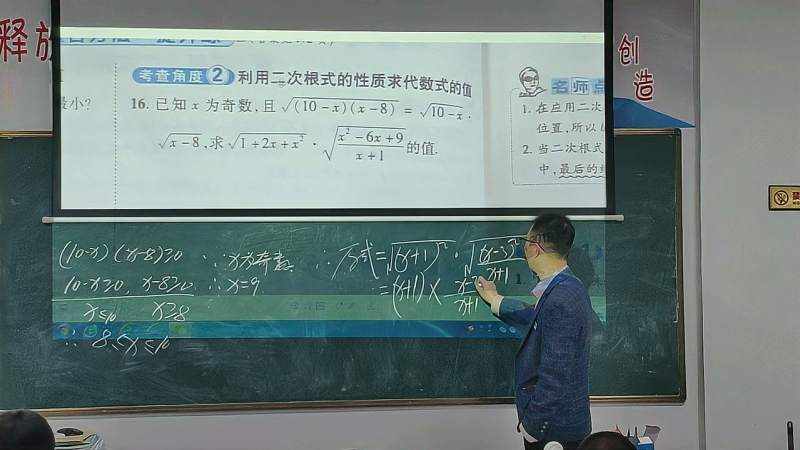 释放
创造
最小?
考查角度2 利用二次根式的性质求代数式的值
16. 已知 x 为奇数,且 √(10-x)(x-8) = √10-x ·
√x-8,求 √1+2x+x² · √x²-6x+9/x+1 的值.
名师点
1. 在应用二次
位置,所以
2. 当二次根式
中,最后的
(10-x)(x-8)≥0 ∵x为奇数 ∴原式=√(x+1)² · √(x-3)²/x+1
10-x≥0, x-8≥0 ∴x=9 =(x+1)×
x≤10 x≥8
∴ 8≤x≤10
禁